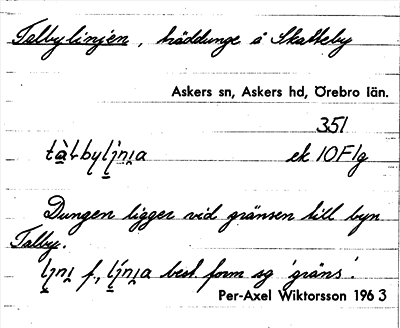 Talbylinjen, träddunge å Skatteby
Askers sn, Askers hd, Örebro län.
351
ek 10F1g
Dungen ligger vid gränsen till byn
Talby.
f., best. form sg 'gräns'.
Per-Axel Wiktorsson 1963